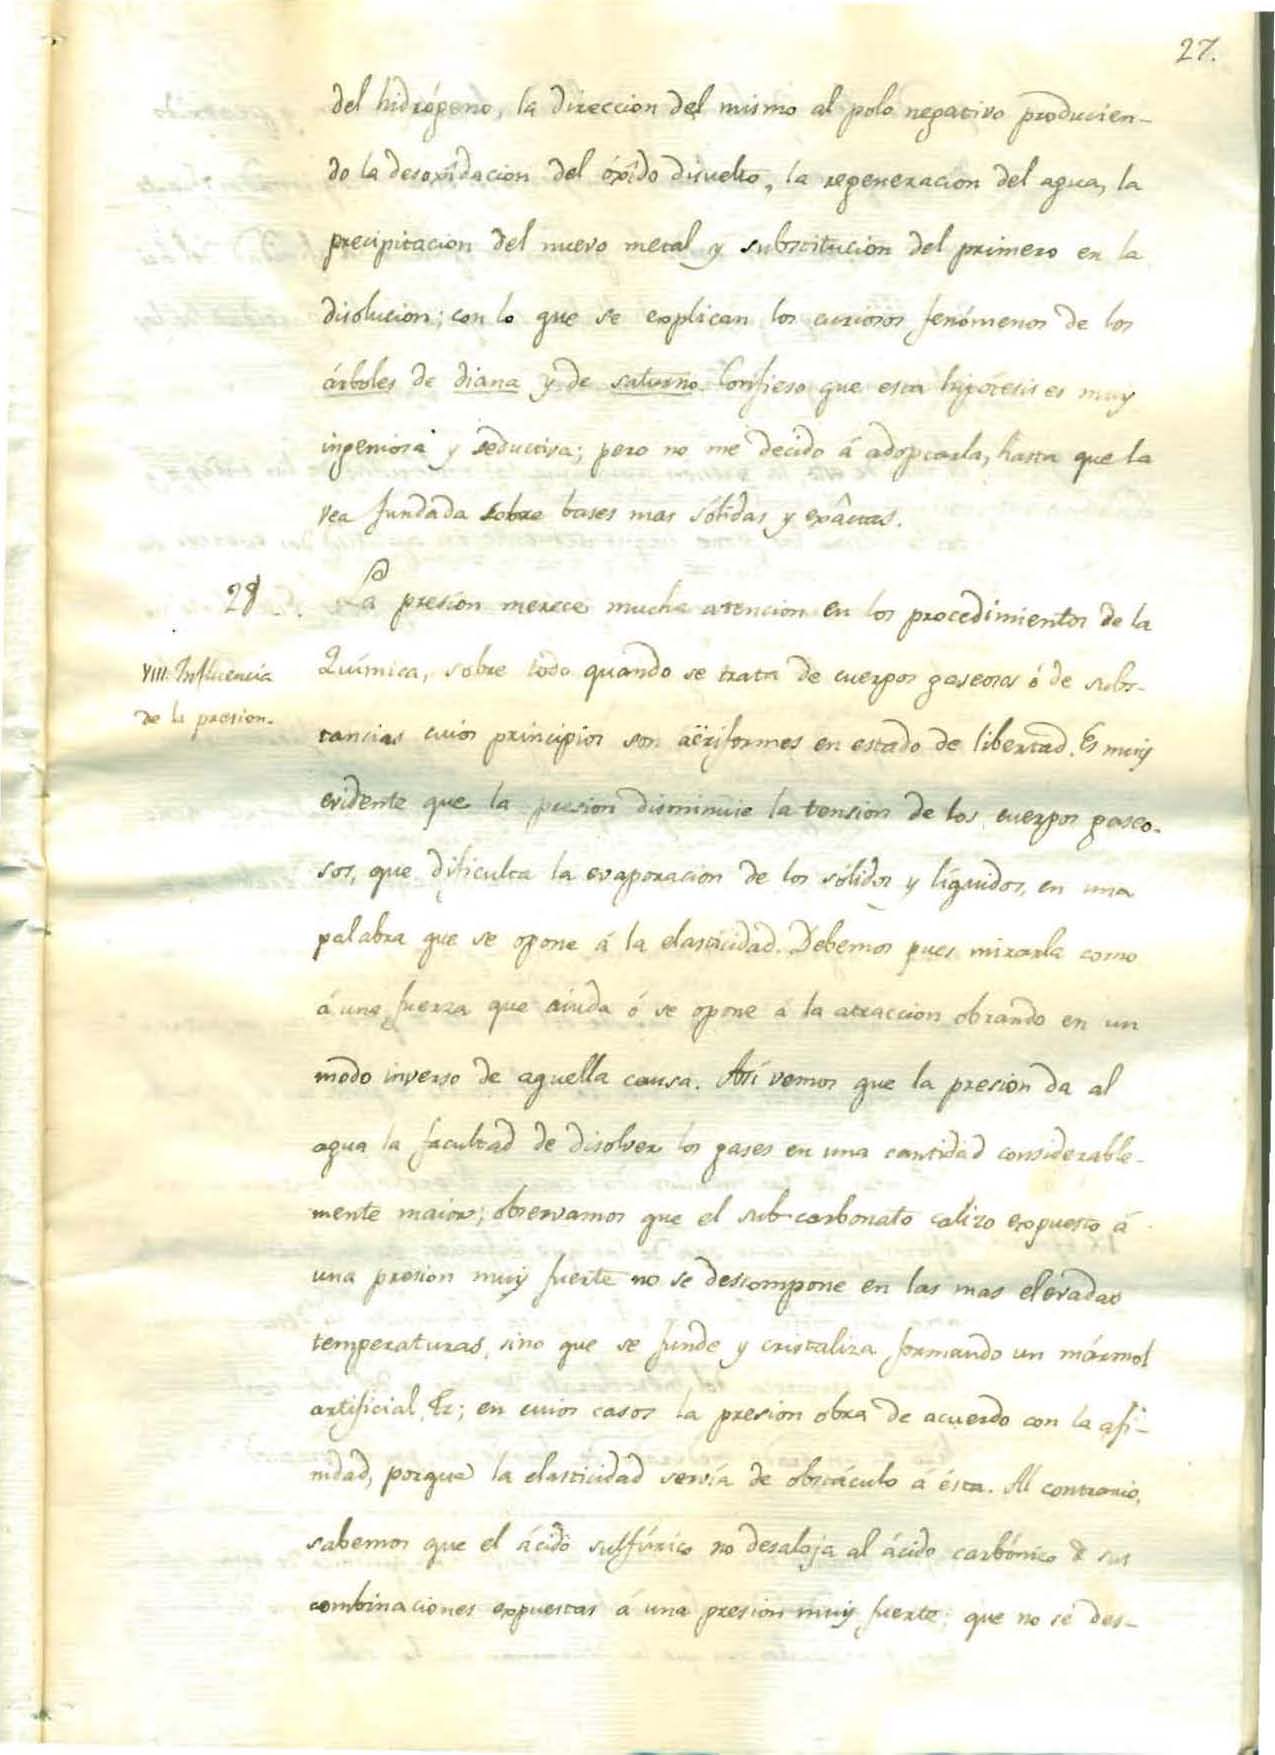 27.
del hidrógeno, la direccion del mismo al polo negativo producien-
do la desoxîdacion del óxîdo disuelto, la regeneracion del agua, la
precipitacion del nuevo metal y substitucion del primero en la
disolucion; con lo que se explican los curiosos fenómenos de los
árboles de diana y de saturno. Confieso que esta hipótesis es muy
ingeniosa y seductiva; pero no me decido á adoptarla, hasta que la
vea fundada sobre bases mas sólidas y exâctas.
28 . . La presion merece mucha atencion en los procedimientos de la
VIII. Influencia
de la presion.
Química, sobre todo quando se trata de cuerpos gaseosos ó de subs-
tancias cuios principios son aëriformes en estado de libertad. Es muy
evidente que la presion disminuie la tension de los cuerpos gaseo-
sos, que dificulta la evaporacion de los sólidos y líquidos, en una
palabra que se opone á la elasticidad. Debemos pues mirarla como
á una fuerza que aiuda ó se opone á la atraccion obrando en un
modo inverso de aquella causa. Así vemos que la presion da al
agua la facultad de disolver los gases en una cantidad considerable-
mente maior; observamos que el sub-carbonato calizo expuesto á
una presion muy fuerte no se descompone en las mas elevadas
temperaturas, sino que se funde y cristaliza formando un mármol
artificial, &c; en cuios casos la presion obra de acuerdo con la afi-
nidad, porque la elasticidad servía de obstáculo á ésta. Al contrario,
sabemos que el ácido sulfúrico no desaloja al ácido carbónico de sus
combinaciones expuestas á una presion muy fuerte; que no se des-